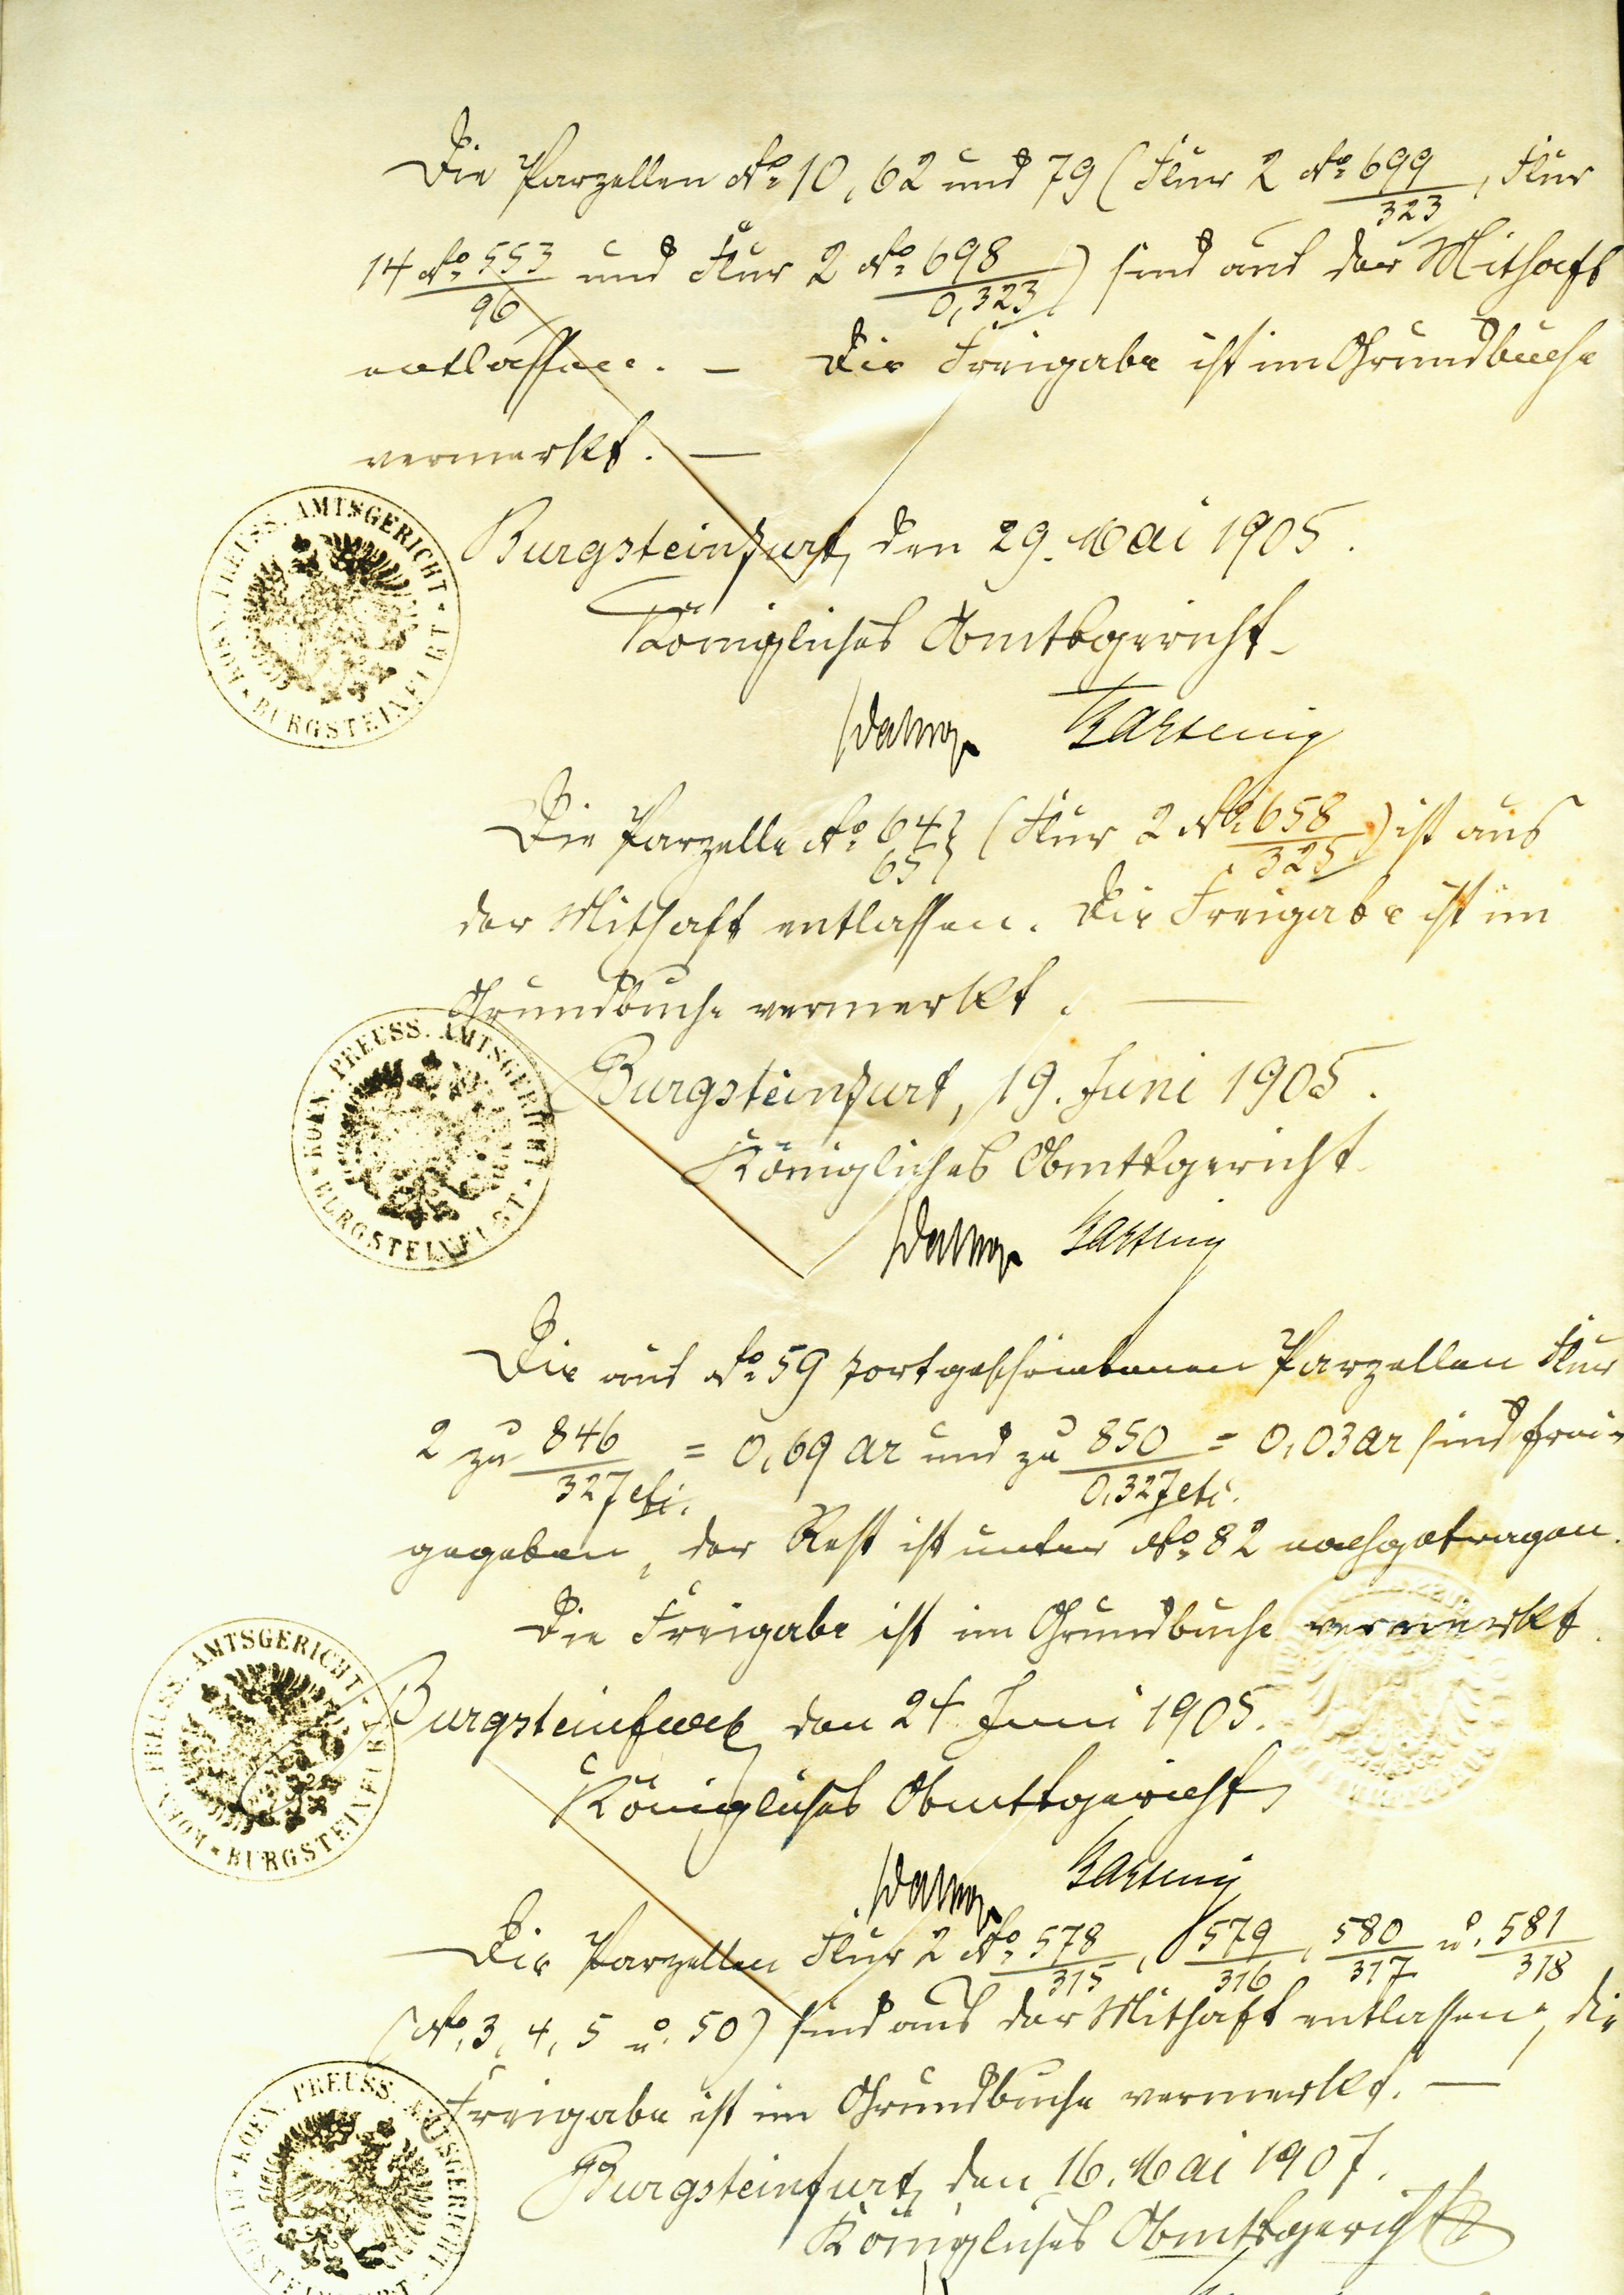 Die Parzellen No 10, 62 und 79 (Flur 2 No 699/323, Flur
14 No 553/96 und Flur 2 No 698/0,323) sind aus der Mithaft
entlassen. — Die Freigabe ist im Grundbuche
vermerkt. —
KOEN. PREUSS. AMTSGERICHT * BURGSTEINFURT *
Burgsteinfurt, den 29. Mai 1905.
Königliches Amtsgericht.
Die Parzelle No 64 } (Flur 2 No 658/325) ist aus
65 }
der Mithaft entlassen. Die Freigabe ist im
Grundbuche vermerkt. —
KOEN. PREUSS. AMTSGERICHT * BURGSTEINFURT *
Burgsteinfurt, 19. Juni 1905.
Königliches Amtsgericht.
Die aus No 59 fortgeschriebenen Parzellen Flur
2 zu 846/327 etc. = 0,69 ar und zu 850/0,327 etc. = 0,03 ar sind frei-
gegeben, der Rest ist unter No 82 nachgetragen.
Die Freigabe ist im Grundbuche vermerkt.
KOEN. PREUSS. AMTSGERICHT * BURGSTEINFURT *
Burgsteinfurt, den 24. Juni 1905.
Königliches Amtsgericht
Die Parzellen Flur 2 No 578/315, 579/316, 580/317 u. 581/318
(No. 3, 4, 5 u. 50) sind aus der Mithaft entlassen, die
Freigabe ist im Grundbuche vermerkt. —
KOEN. PREUSS. AMTSGERICHT * BURGSTEINFURT
Burgsteinfurt, den 16. Mai 1907.
Königliches Amtsgericht